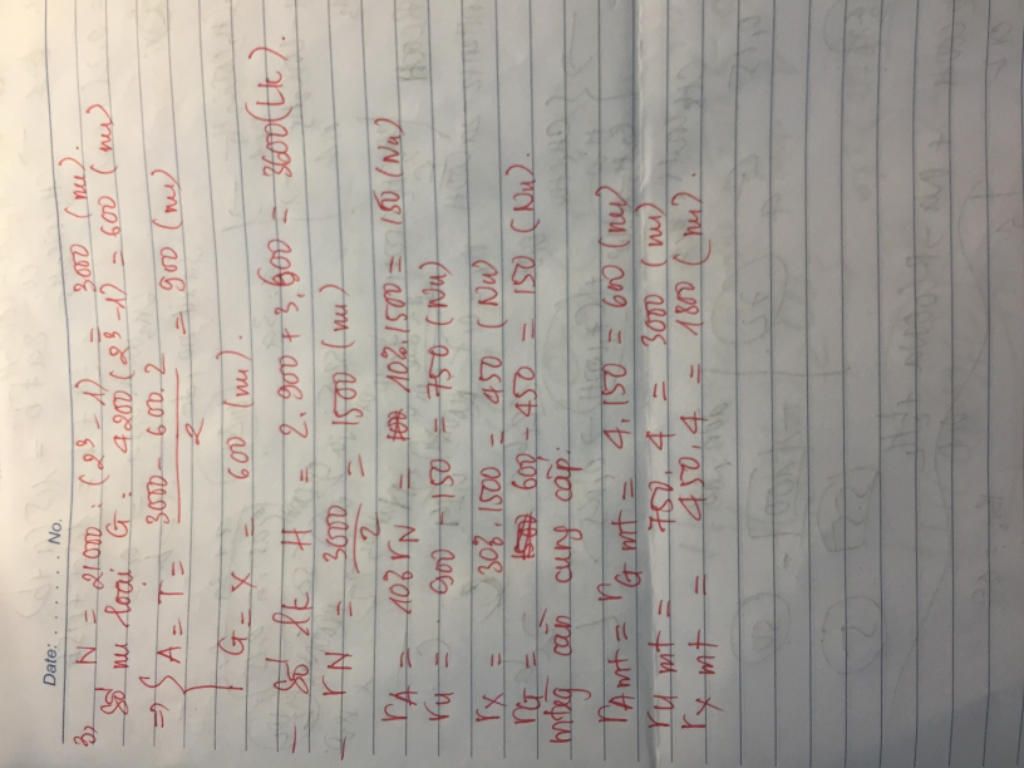 Date: ...... No.
3, N = 21000 : (2³ - 1) = 3000 (nu).
Số nu loại G : 4200 (2³ - 1) = 600 (nu)
=> { A = T = 3000 - 600.2 / 2 = 900 (nu)
G = X = 600 (nu).
- Số lk H = 2.900 + 3.600 = 3600 (Lk).
- rN = 3000 / 2 = 1500 (nu)
rA = 10% rN = 10%.1500 = 150 (Nu)
rU = 900 - 150 = 750 (Nu)
rX = 30%.1500 = 450 (Nu)
rG = 600 - 450 = 150 (Nu).
mtrg cần cung cấp:
rA mt = rG mt = 4.150 = 600 (nu)
rU mt = 750.4 = 3000 (nu)
rX mt = 450.4 = 1800 (nu).